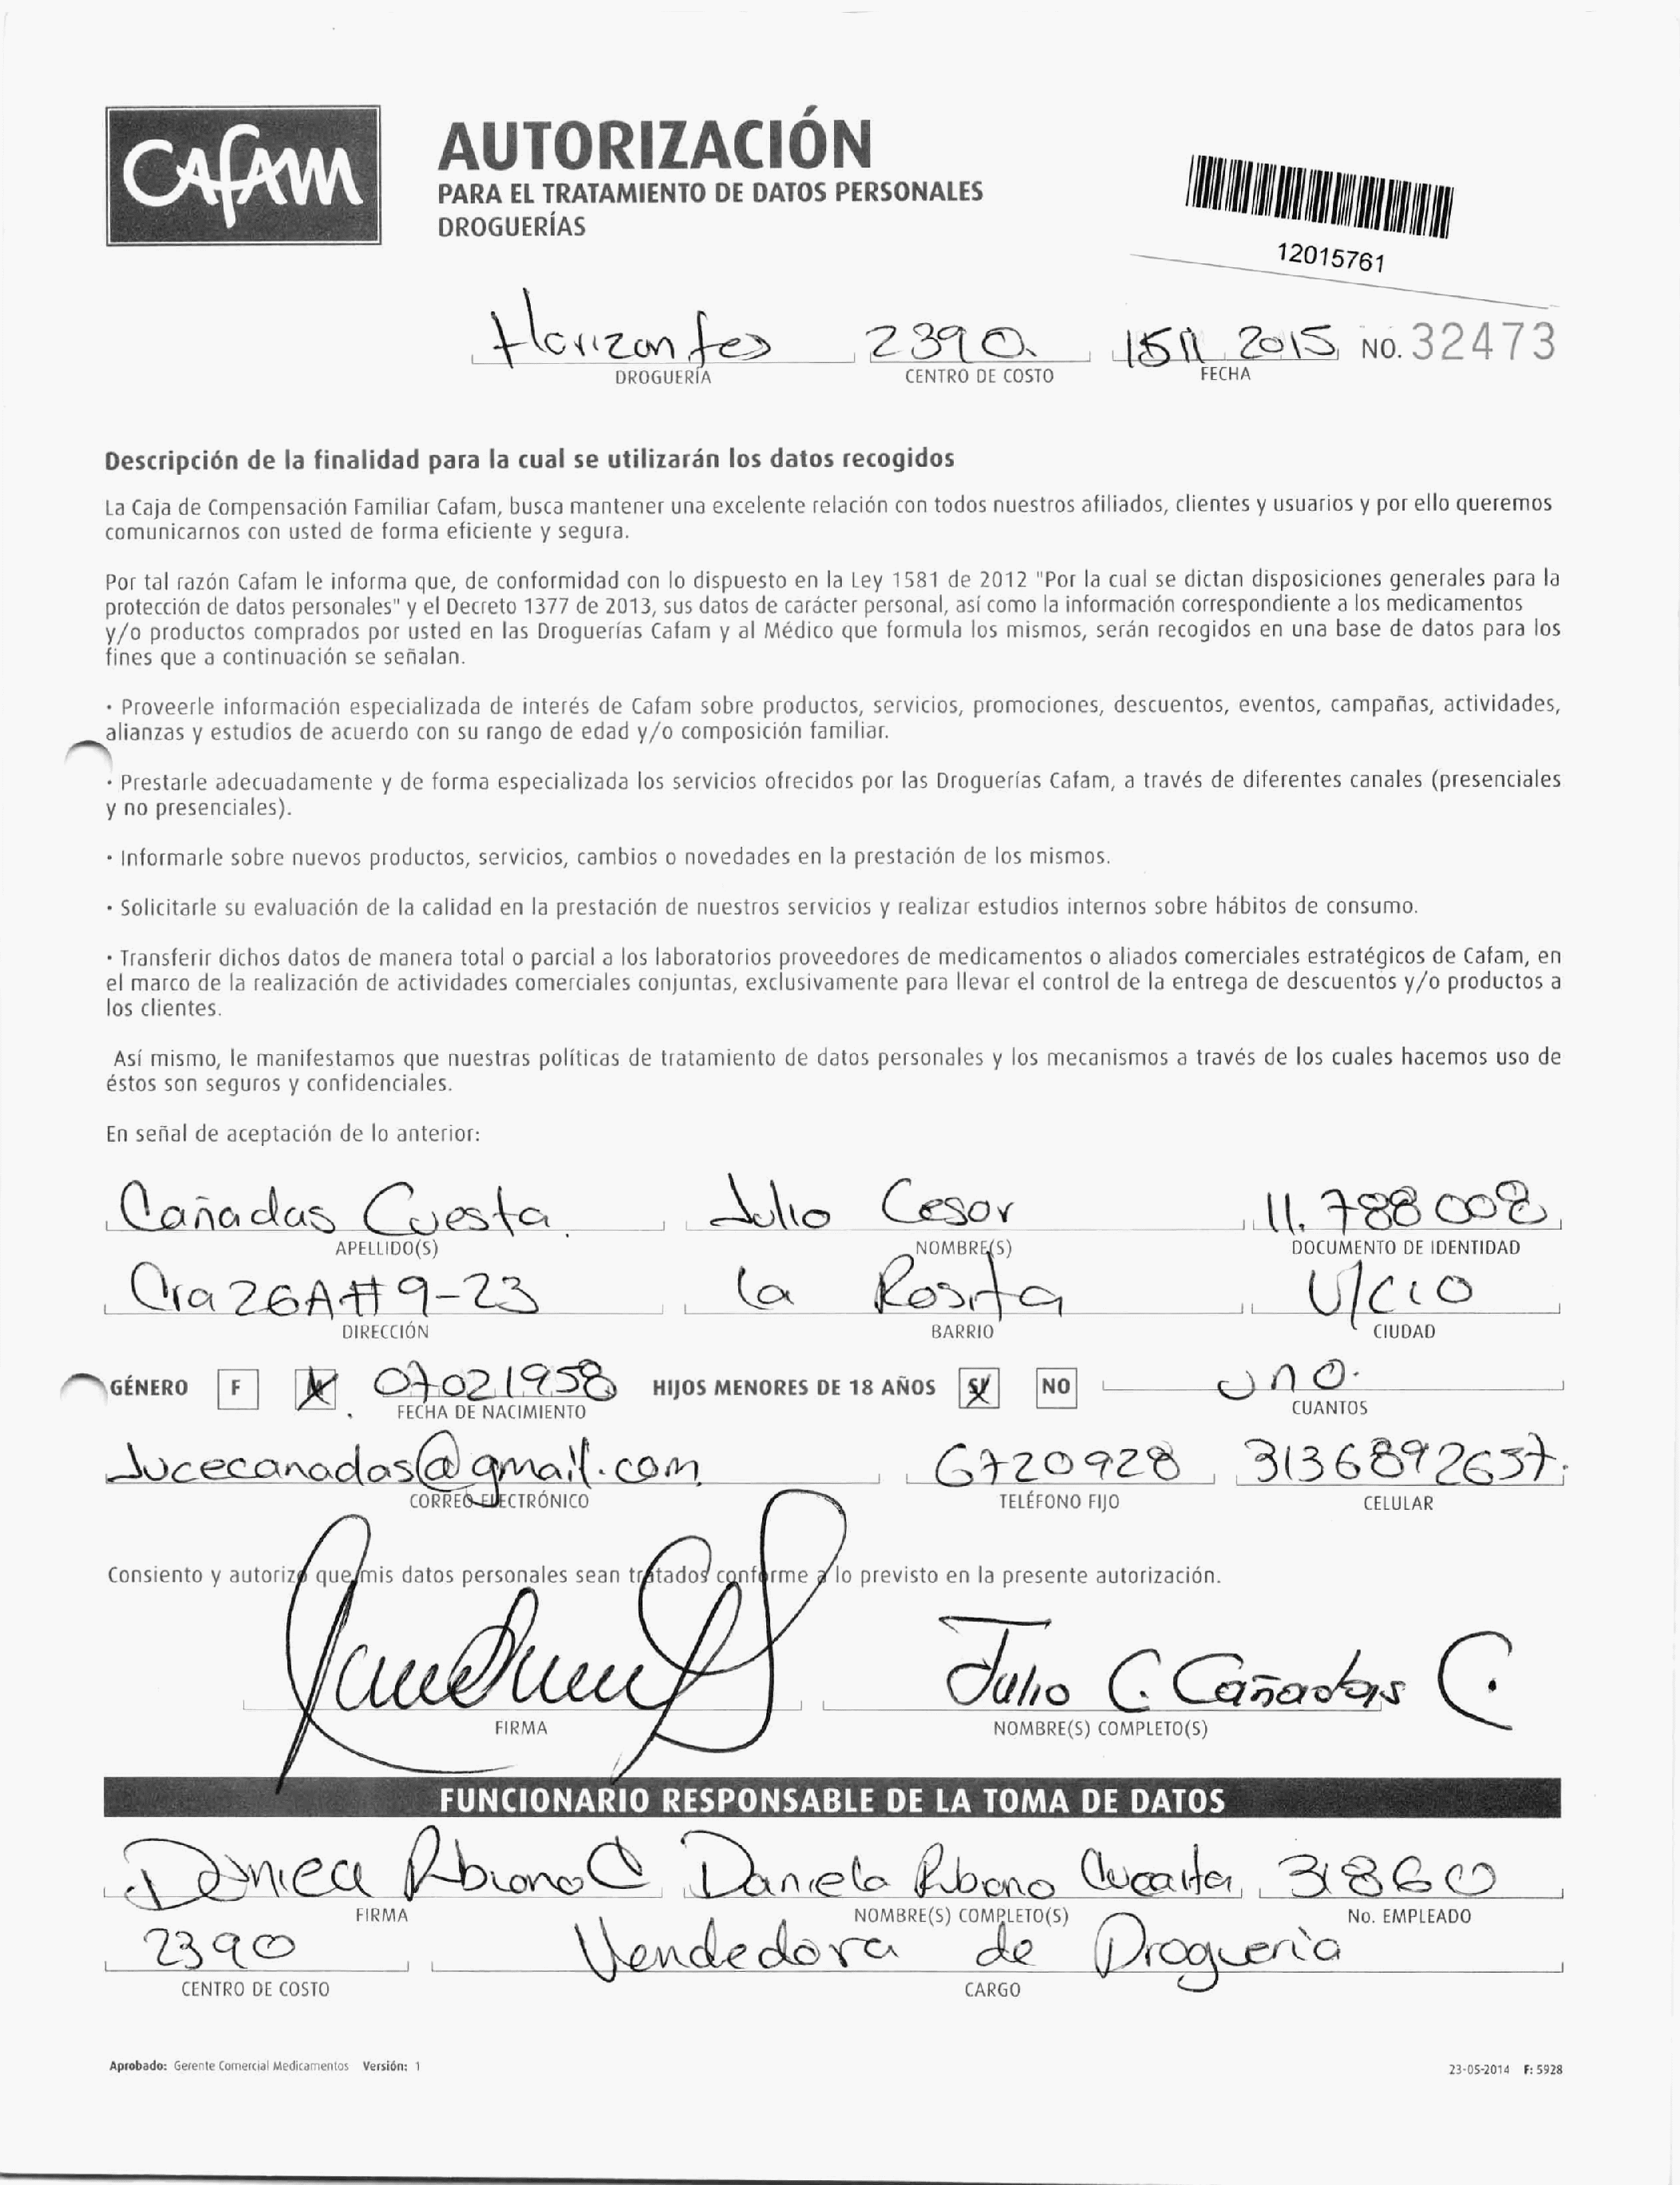 CAFAM
AUTORIZACIÓN
PARA EL TRATAMIENTO DE DATOS PERSONALES
DROGUERÍAS
12015761
Horizontes 2390. 1511 2015 NO. 32473
DROGUERÍA CENTRO DE COSTO FECHA
Descripción de la finalidad para la cual se utilizarán los datos recogidos
La Caja de Compensación Familiar Cafam, busca mantener una excelente relación con todos nuestros afiliados, clientes y usuarios y por ello queremos
comunicarnos con usted de forma eficiente y segura.
Por tal razón Cafam le informa que, de conformidad con lo dispuesto en la Ley 1581 de 2012 "Por la cual se dictan disposiciones generales para la
protección de datos personales" y el Decreto 1377 de 2013, sus datos de carácter personal, así como la información correspondiente a los medicamentos
y/o productos comprados por usted en las Droguerías Cafam y al Médico que formula los mismos, serán recogidos en una base de datos para los
fines que a continuación se señalan.
· Proveerle información especializada de interés de Cafam sobre productos, servicios, promociones, descuentos, eventos, campañas, actividades,
alianzas y estudios de acuerdo con su rango de edad y/o composición familiar.
· Prestarle adecuadamente y de forma especializada los servicios ofrecidos por las Droguerías Cafam, a través de diferentes canales (presenciales
y no presenciales).
· Informarle sobre nuevos productos, servicios, cambios o novedades en la prestación de los mismos.
· Solicitarle su evaluación de la calidad en la prestación de nuestros servicios y realizar estudios internos sobre hábitos de consumo.
· Transferir dichos datos de manera total o parcial a los laboratorios proveedores de medicamentos o aliados comerciales estratégicos de Cafam, en
el marco de la realización de actividades comerciales conjuntas, exclusivamente para llevar el control de la entrega de descuentos y/o productos a
los clientes.
Así mismo, le manifestamos que nuestras políticas de tratamiento de datos personales y los mecanismos a través de los cuales hacemos uso de
éstos son seguros y confidenciales.
En señal de aceptación de lo anterior:
Cañadas Cuesta. Julio Cesar 11.788008
APELLIDO(S) NOMBRE(S) DOCUMENTO DE IDENTIDAD
Cra 26A # 9-23 La Rosita V/cio
DIRECCIÓN BARRIO CIUDAD
GÉNERO F M 07021958 HIJOS MENORES DE 18 AÑOS SI NO uno.
FECHA DE NACIMIENTO CUANTOS
Jucecanadas@gmail.com 6720928 3136892637.
CORREO ELECTRÓNICO TELÉFONO FIJO CELULAR
Consiento y autorizo que mis datos personales sean tratados conforme a lo previsto en la presente autorización.
Julio C. Cañadas C.
FIRMA NOMBRE(S) COMPLETO(S)
FUNCIONARIO RESPONSABLE DE LA TOMA DE DATOS
Daniela 31860
FIRMA NOMBRE(S) COMPLETO(S) No. EMPLEADO
2390 Vendedora de Drogueria
CENTRO DE COSTO CARGO
Aprobado: Gerente Comercial Medicamentos Versión: 1 23-05-2014 F: 5928